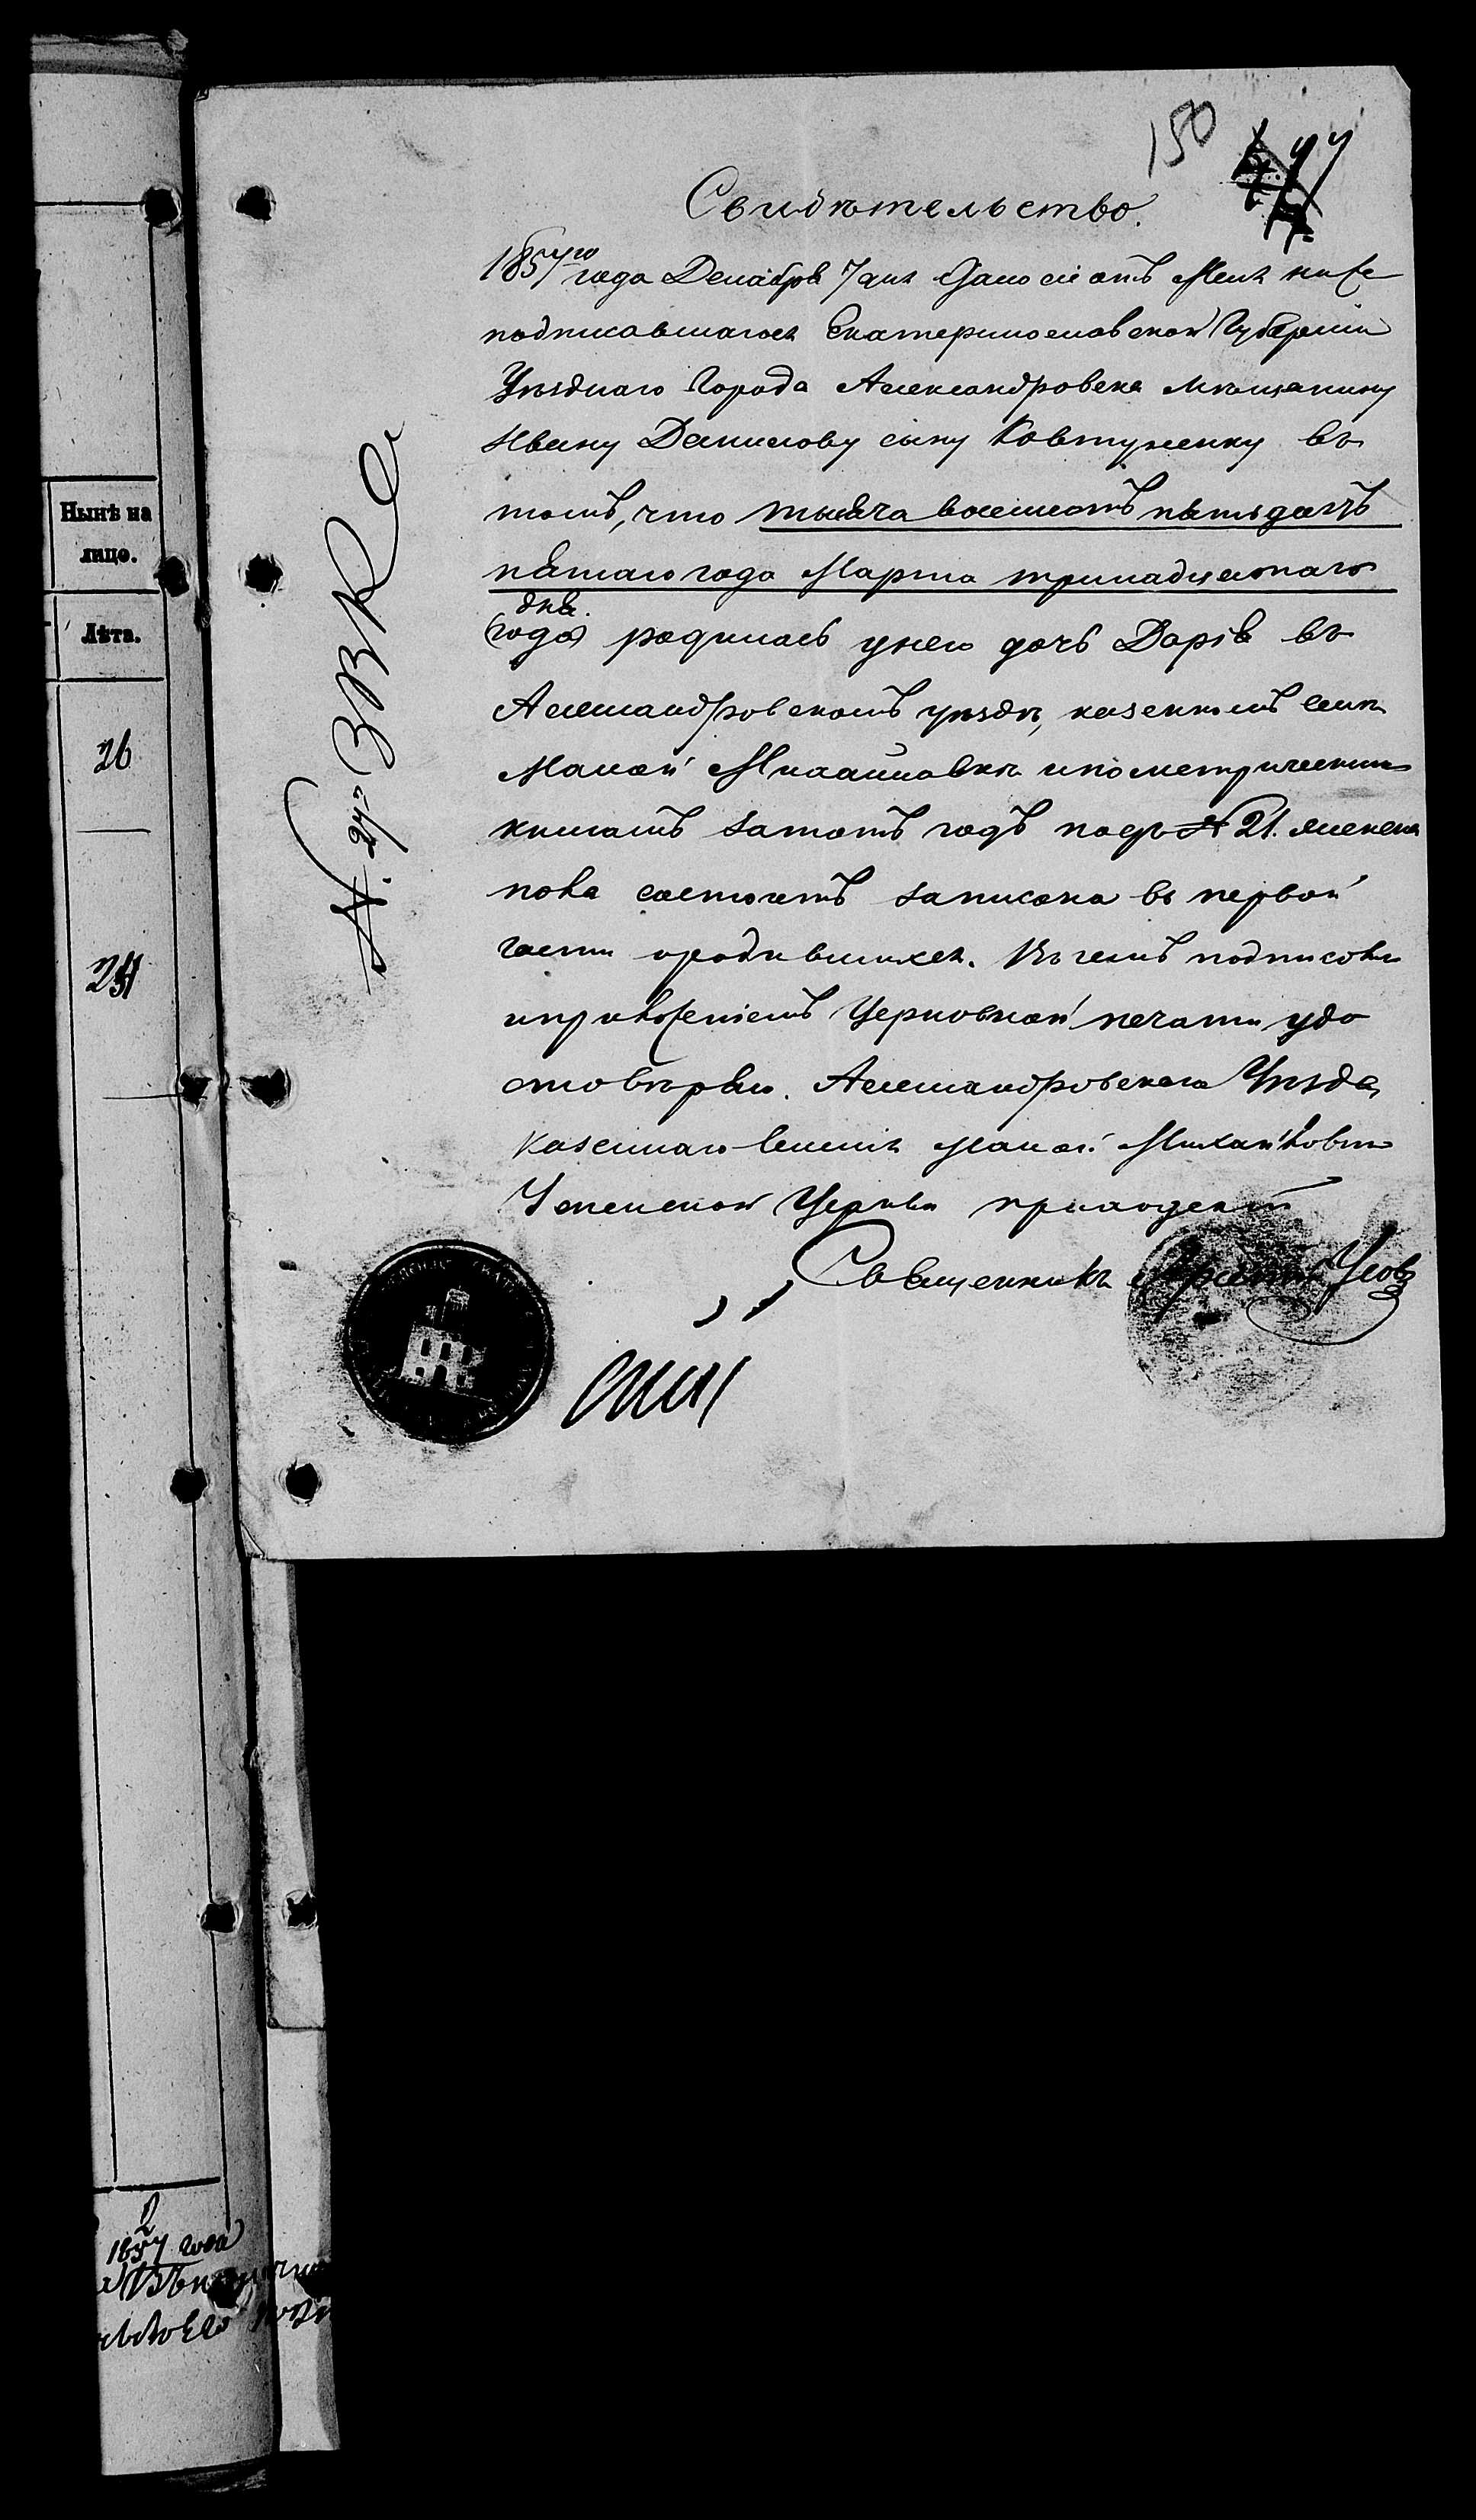 150
Свидѣтельство.
1857го года Декабря 7 дня Дано сіе отъ Меня ниже
подписавшагося Екатеринославской Губерніи
Уѣзднаго Города Александровска мѣщанину
Ивану Данилову сыну Ковтуненку въ
томъ, что тысяча восемсотъ пятьдесятъ
пятаго года Марта тринадцатаго
дня.
(года) родилась у него дочь Дарія въ
Александровскомъ уѣздѣ, казенномъ селѣ
Малой Михайловкѣ и по метрическимъ
книгамъ за тотъ годъ подъ № 21. женска
пола состоитъ записана въ первой
части о родившихся. Въ чемъ подписомъ
и приложеніемъ Церковной печати удо
стовѣряю. Александровскаго Уѣзда,
казеннаго селенія Малой Михайловки
Успенской Церкви приходскій
Священникъ Усовъ
№. 27
Нынѣ на
лицо.
Лѣта.
26
1857 года